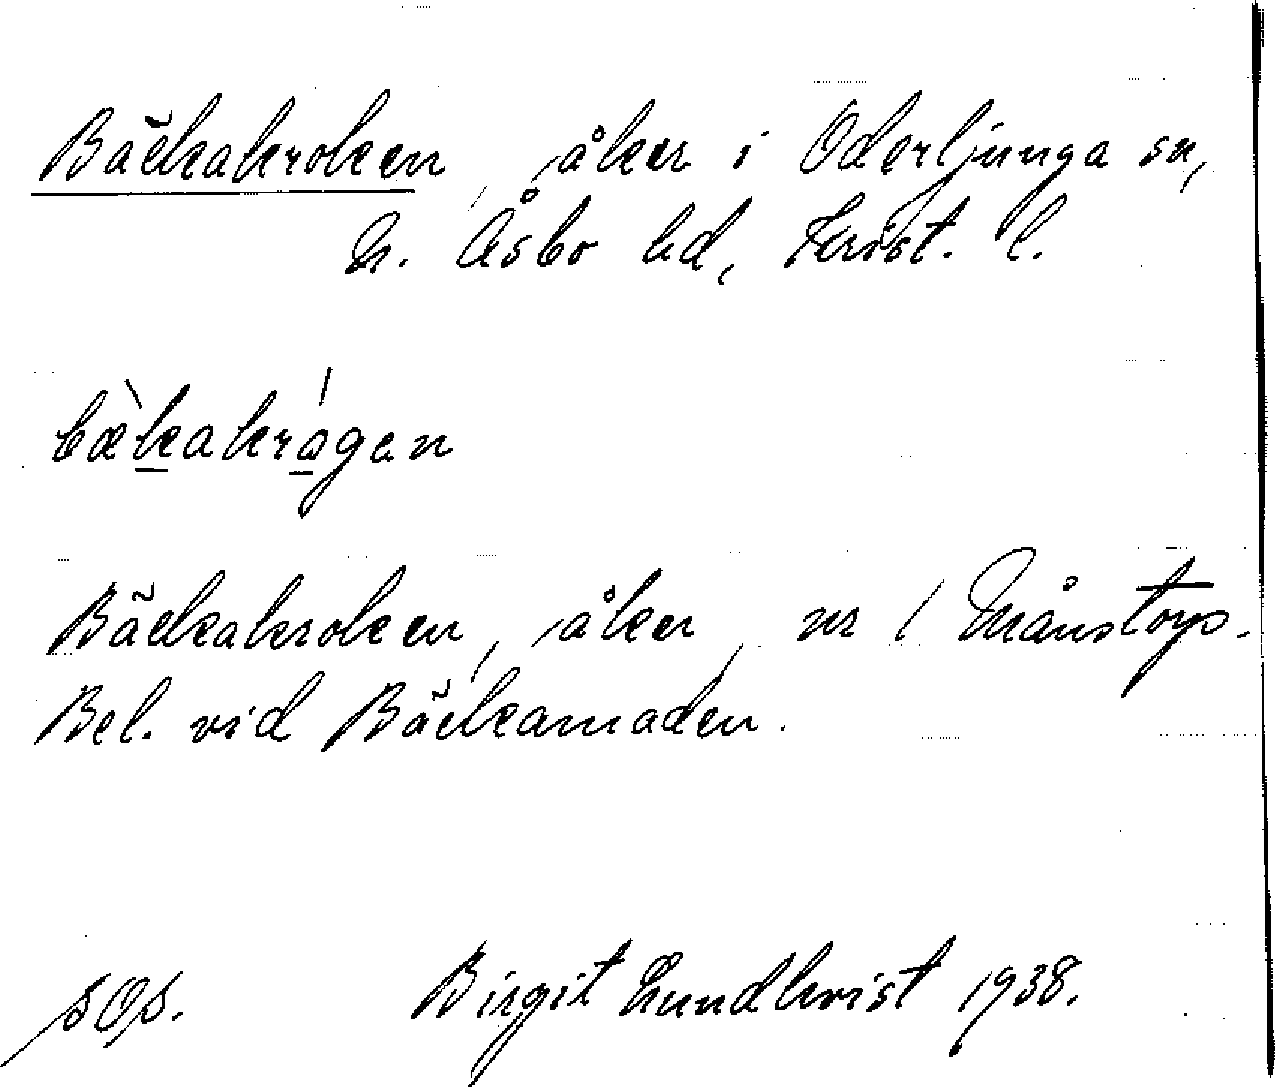 Bäckakroken, åker i Oderljunga sn,
N. Åsbo hd, Krist. l.
bækakrågen
Bäckakroken, åker, nr 1 Månstorp.
Bel. vid Bäckamaden.
Birgit Lundkvist 1938.